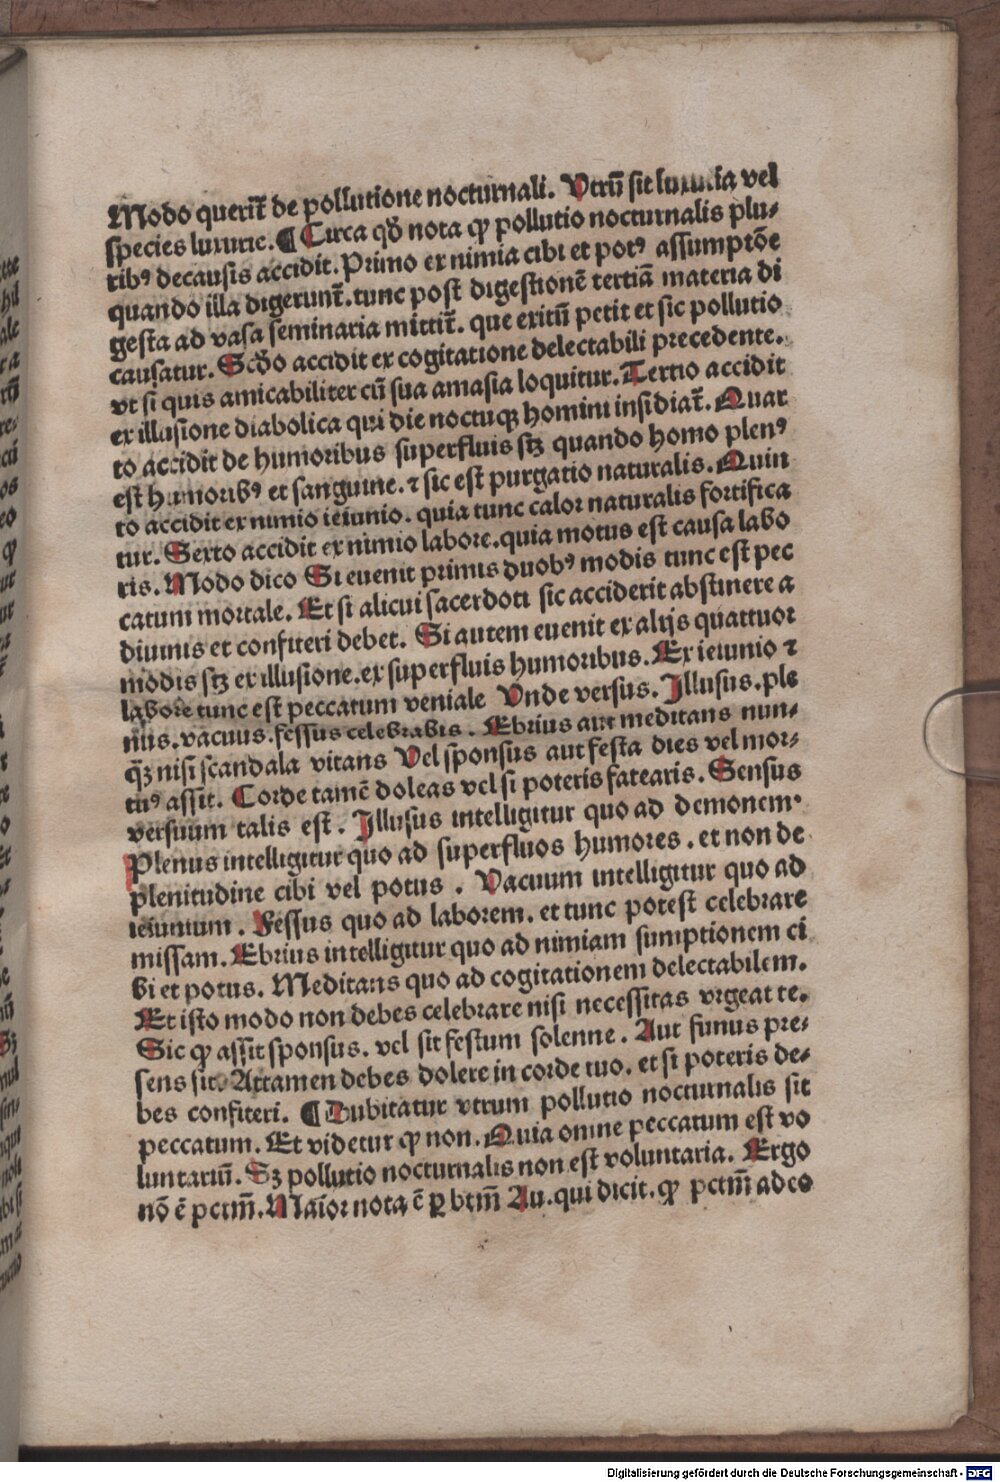 Modo querit̃ de pollutione nocturnali. Vtrũ sit luxuria vel
species luxurie. ¶ Circa qđ nota ꝙ pollutio nocturnalis plu-
ribꝰ decausis accidit. Primo ex nimia cibi et potꝰ assumptõe
quando illa digerunt̃. tunc post digestionẽ tertiã materia di
gesta ad vasa seminaria mittit̃. que exitũ petit et sic pollutio
causatur. Scđo accidit ex cogitatione delectabili precedente.
vt si quis amicabiliter cũ sua amasia loquitur. Tertio accidit
ex illusione diabolica qui die noctuqꝫ homini insidiat̃. Quar
to accidit de humoribus superfluis sꝫ quando homo plenꝰ
est humoribꝰ et sanguine. ⁊ sic est purgatio naturalis. Quin
to accidit ex nimio ieiunio. quia tunc calor naturalis fortifica
tur. Sexto accidit ex nimio labore. quia motus est causa labo
ris. Modo dico Si euenit primis duobꝰ modis tunc est pec
catum mortale. Et si alicui sacerdoti sic acciderit abstinere a
diuinis et confiteri debet. Si autem euenit ex alijs quattuor
modis sꝫ ex illusione. ex superfluis humoribus. Ex ieiunio ⁊
labore tunc est peccatum veniale Vnde versus. Illusus. ple
nus. vacuus. fessus celebrabis. Ebrius aut meditans nun-
q̃ꝫ nisi scandala vitans Vel sponsus aut festa dies vel mor-
tuꝰ assit. Corde tamẽ doleas vel si poteris fatearis. Sensus
versuum talis est. Illusus intelligitur quo ad demonem.
Plenus intelligitur quo ad superfluos humores. et non de
plenitudine cibi vel potus. Vacuum intelligitur quo ad
ieiunium. Fessus quo ad laborem. et tunc potest celebrare
missam. Ebrius intelligitur quo ad nimiam sumptionem ci
bi et potus. Meditans quo ad cogitationem delectabilem.
Et isto modo non debes celebrare nisi necessitas vrgeat te.
Sic ꝙ assit sponsus. vel sit festum solenne. Aut funus pre-
sens sit. Attamen debes dolere in corde tuo. et si poteris de-
bes confiteri. ¶ Dubitatur vtrum pollutio nocturnalis sit
peccatum. Et videtur ꝙ non. Quia omne peccatum est vo
luntariũ. Sꝫ pollutio nocturnalis non est voluntaria. Ergo
nõ ẽ pctm̃. Maior nota ẽ ꝑ btm̃ Au. qui dicit. ꝙ pctm̃ adeo
Digitalisierung gefördert durch die Deutsche Forschungsgemeinschaft - DFG